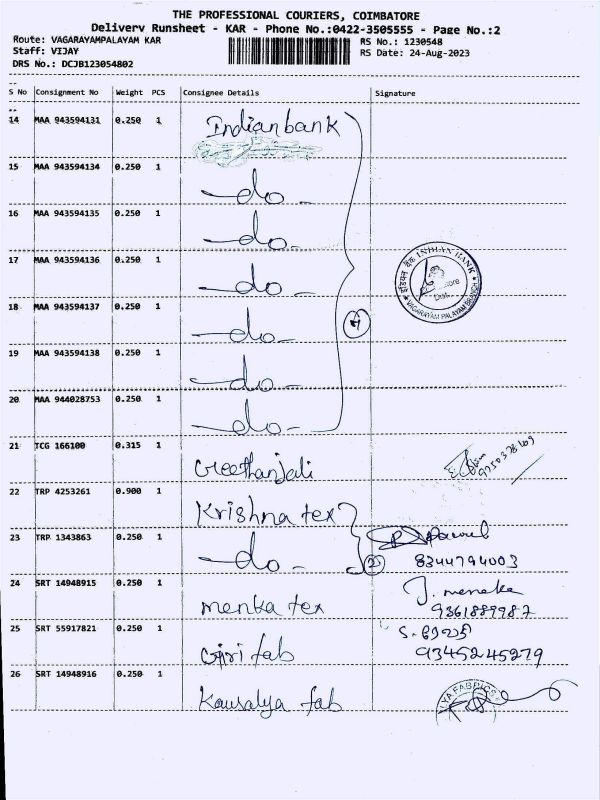 THE PROFESSIONAL COURIERS, COIMBATORE
Delivery Runsheet - KAR - Phone No.:0422-3505555 - Page No.:2
Route: VAGARAYAMPALAYAM KAR RS No.: 1230548
Staff: VIJAY RS Date: 24-Aug-2023
DRS No.: DCJB123054802
S No Consignment No Weight PCS Consignee Details Signature
14 MAA 943594131 0.250 1 Indian bank
15 MAA 943594134 0.250 1 -do-
16 MAA 943594135 0.250 1 -do-
17 MAA 943594136 0.250 1 -do-
इंडियन बैंक INDIAN BANK
VAGARAYAM PALAYAM BRANCH
18 MAA 943594137 0.250 1 -do- 7
19 MAA 943594138 0.250 1 -do-
20 MAA 944028753 0.250 1 -do-
21 TCG 166100 0.315 1 Geethanjali
22 TRP 4253261 0.900 1 Krishna tex
23 TRP 1343863 0.250 1 -do- 2 8344794003
24 SRT 14948915 0.250 1 menka tex J. menaka
9361889987
25 SRT 55917821 0.250 1 Giri fab S. தேவகி
9345245279
26 SRT 14948916 0.250 1 Kausalya fab